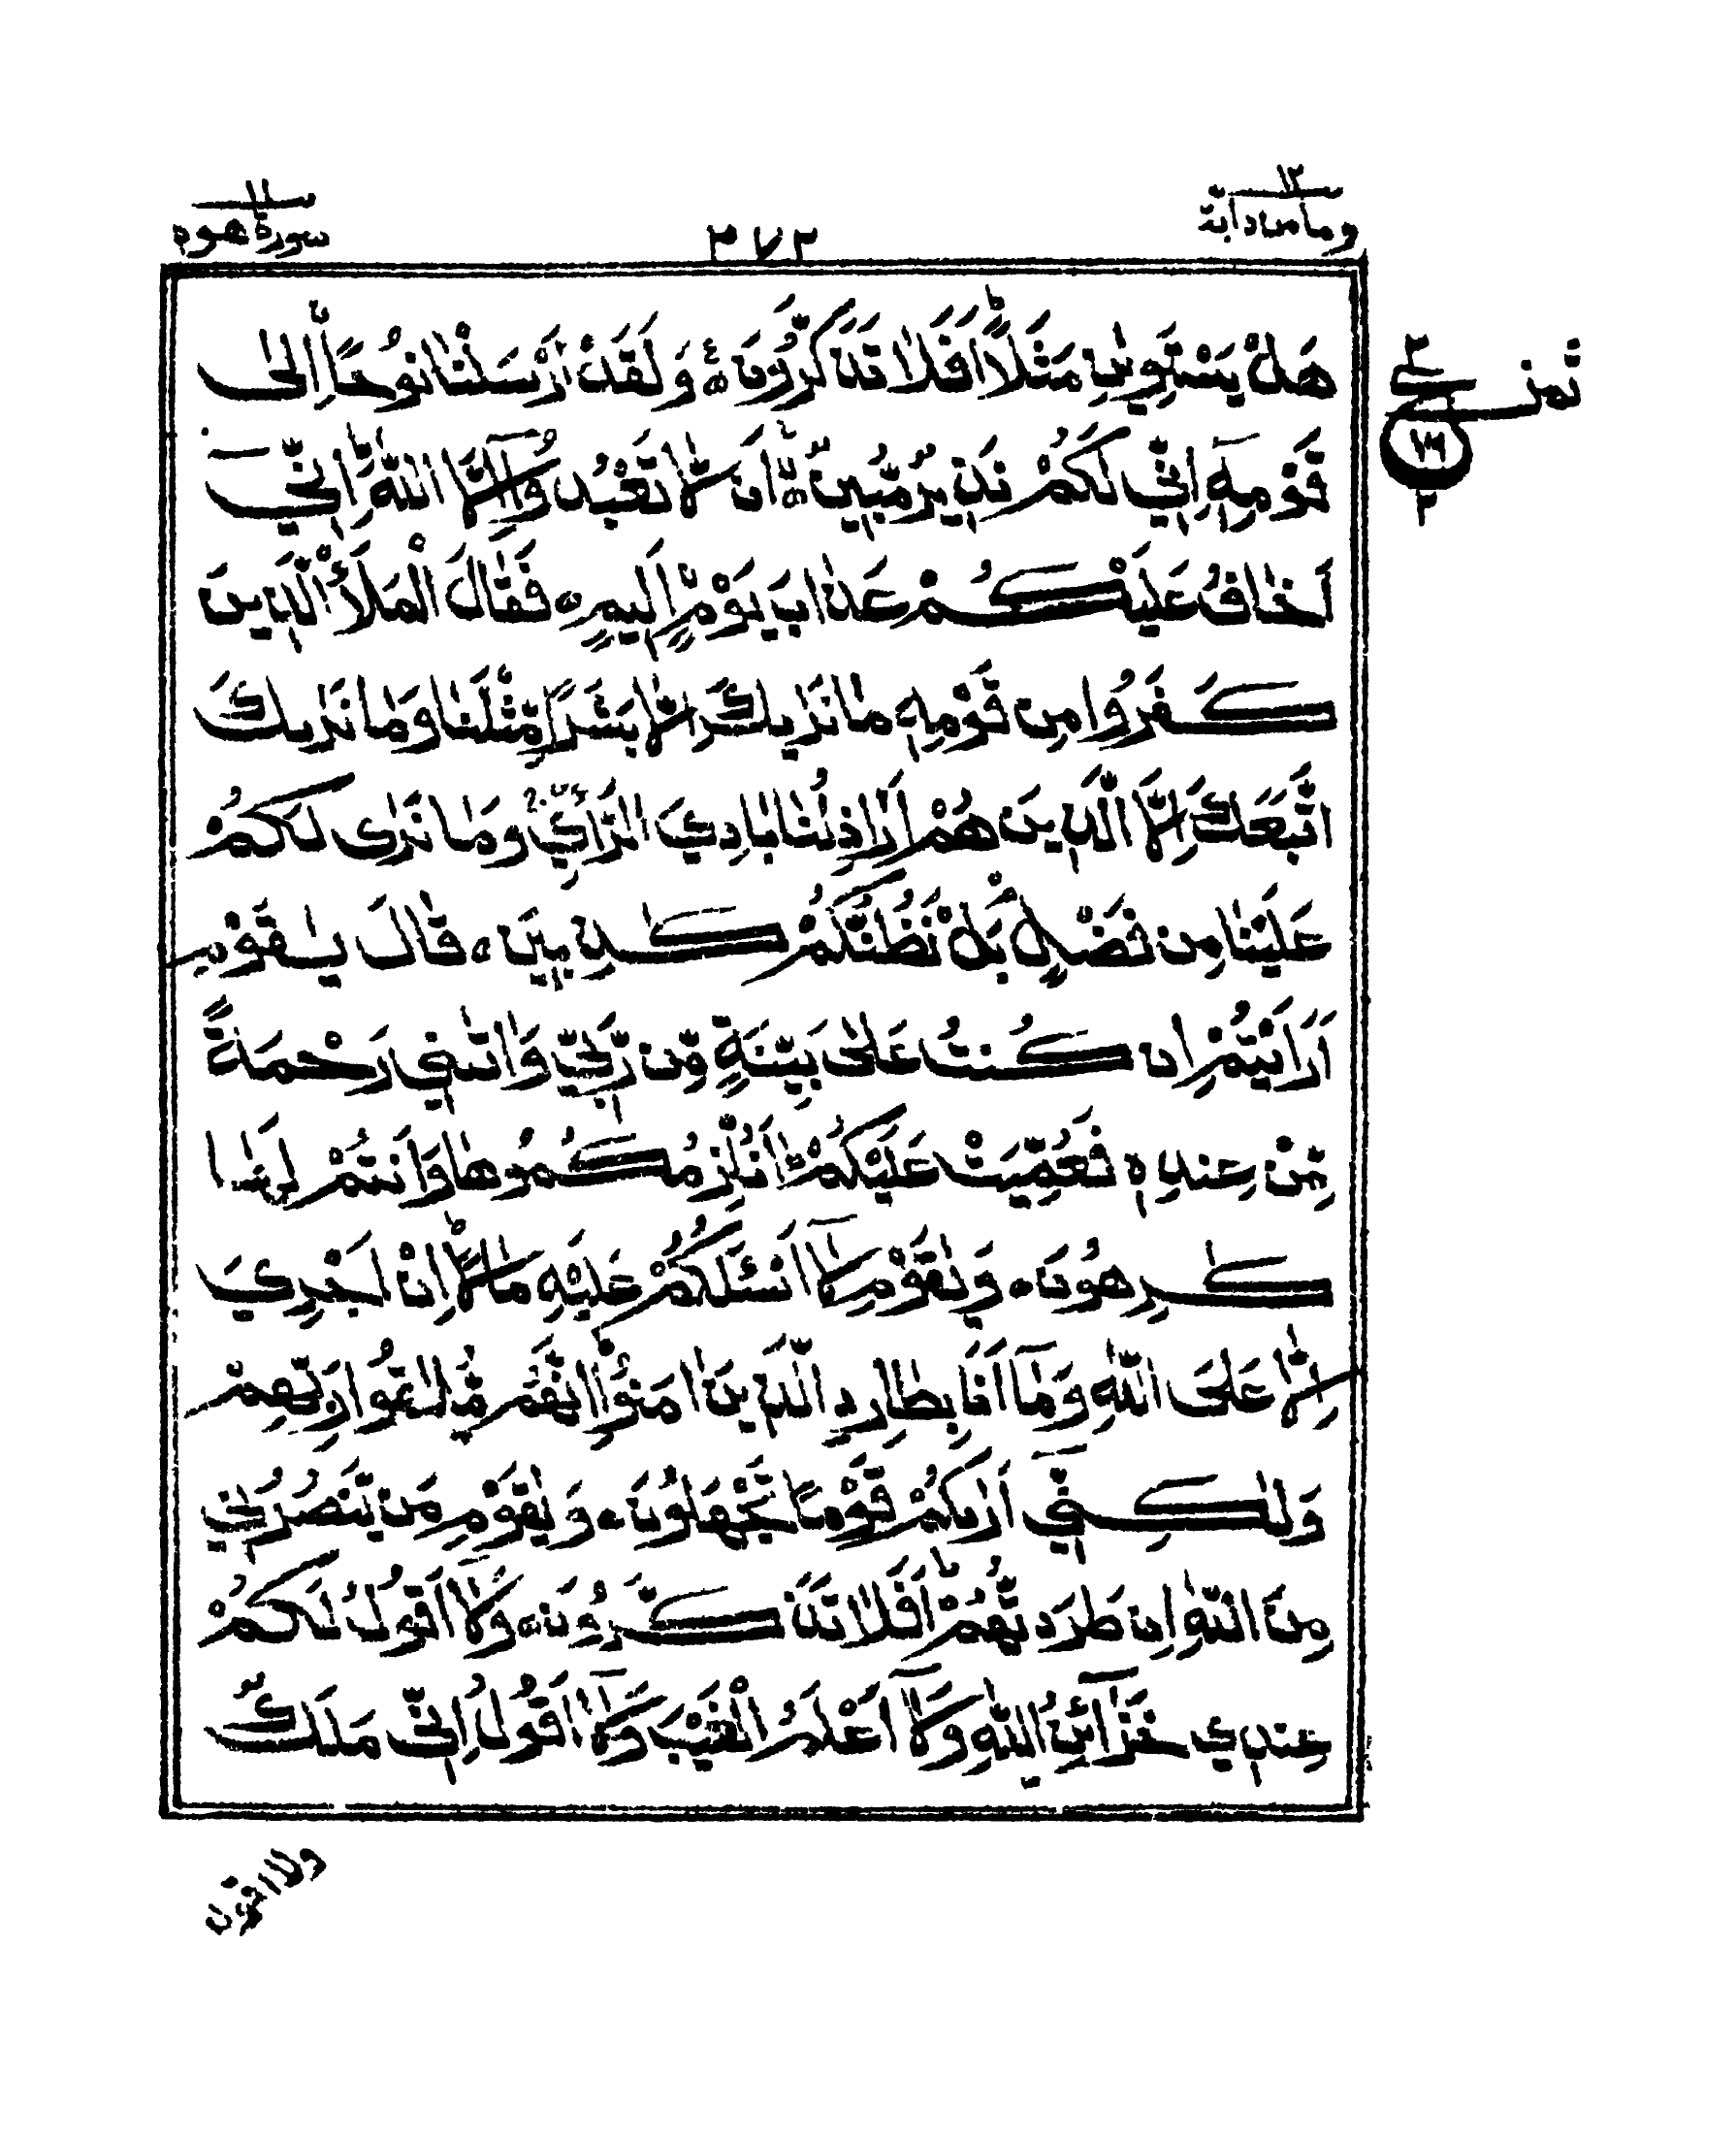 وما من دآبة ١٢
٣٧٢
سورة هود ١١
هَلْ يَسْتَوِيٰنِ مَثَلًاؕ اَفَلَا تَذَكَّرُوْنَ۠ وَلَقَدْ اَرْسَلْنَا نُوحًا اِلٰى
قَوْمِهٖٓ اِنِّي لَكُمْ نَذِيرٌ مُّبِينٌۙ اَن لَّا تَعْبُدُوٓا اِلَّا اللّٰهَؕ اِنِّيٓ
اَخَافُ عَلَيْكُمْ عَذَابَ يَوْمٍ اَلِيمٍ ۝ فَقَالَ الْمَلَاُ الَّذِينَ
كَفَرُوا مِن قَوْمِهٖ مَا نَرٰىكَ اِلَّا بَشَرًا مِّثْلَنَا وَمَا نَرٰىكَ
اتَّبَعَكَ اِلَّا الَّذِينَ هُمْ اَرَاذِلُنَا بَادِيَ الرَّاْيِ وَمَا نَرٰى لَكُمْ
عَلَيْنَا مِن فَضْلٍۢ بَلْ نَظُنُّكُمْ كٰذِبِينَ ۝ قَالَ يٰقَوْمِ
اَرَاَيْتُمْ اِن كُنتُ عَلٰى بَيِّنَةٍ مِّن رَّبِّي وَاٰتٰىنِي رَحْمَةً
مِّنْ عِندِهٖ فَعُمِّيَتْ عَلَيْكُمْؕ اَنُلْزِمُكُمُوهَا وَاَنتُمْ لَهَا
كٰرِهُونَ ۝ وَيٰقَوْمِ لَآ اَسْئَلُكُمْ عَلَيْهِ مَالًاؕ اِنْ اَجْرِيَ
اِلَّا عَلَى اللّٰهِ وَمَآ اَنَا بِطَارِدِ الَّذِينَ اٰمَنُوْاؕ اِنَّهُم مُّلٰقُوا رَبِّهِمْ
وَلٰكِنِّيٓ اَرٰىكُمْ قَوْمًا تَجْهَلُونَ ۝ وَيٰقَوْمِ مَن يَّنصُرُنِي
مِنَ اللّٰهِ اِن طَرَدتُّهُمْؕ اَفَلَا تَذَكَّرُونَ ۝ وَلَآ اَقُولُ لَكُمْ
عِندِي خَزَآئِنُ اللّٰهِ وَلَآ اَعْلَمُ الْغَيْبَ وَلَآ اَقُولُ اِنِّي مَلَكٌ
ثمن
ع
٢
ولا اقول